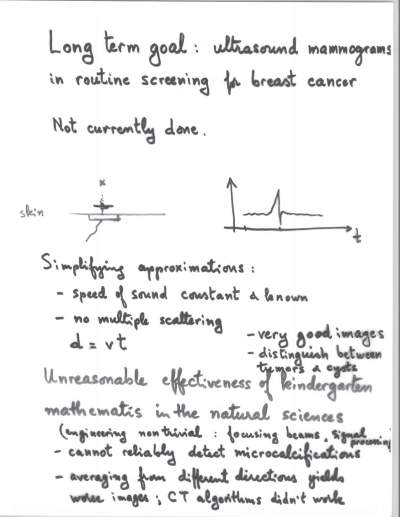 Long term goal : ultrasound mammograms
in routine screening for breast cancer
Not currently done.
x
skin
t
Simplifying approximations :
- speed of sound constant & known
- no multiple scattering
d = vt
- very good images
- distinguish between
tumors & cysts
Unreasonable effectiveness of kindergarten
mathematis in the natural sciences
(engineering nontrivial : focusing beams, signal processing
- cannot reliably detect microcalcifications
- averaging from different directions yields
worse images ; CT algorithms didn't work